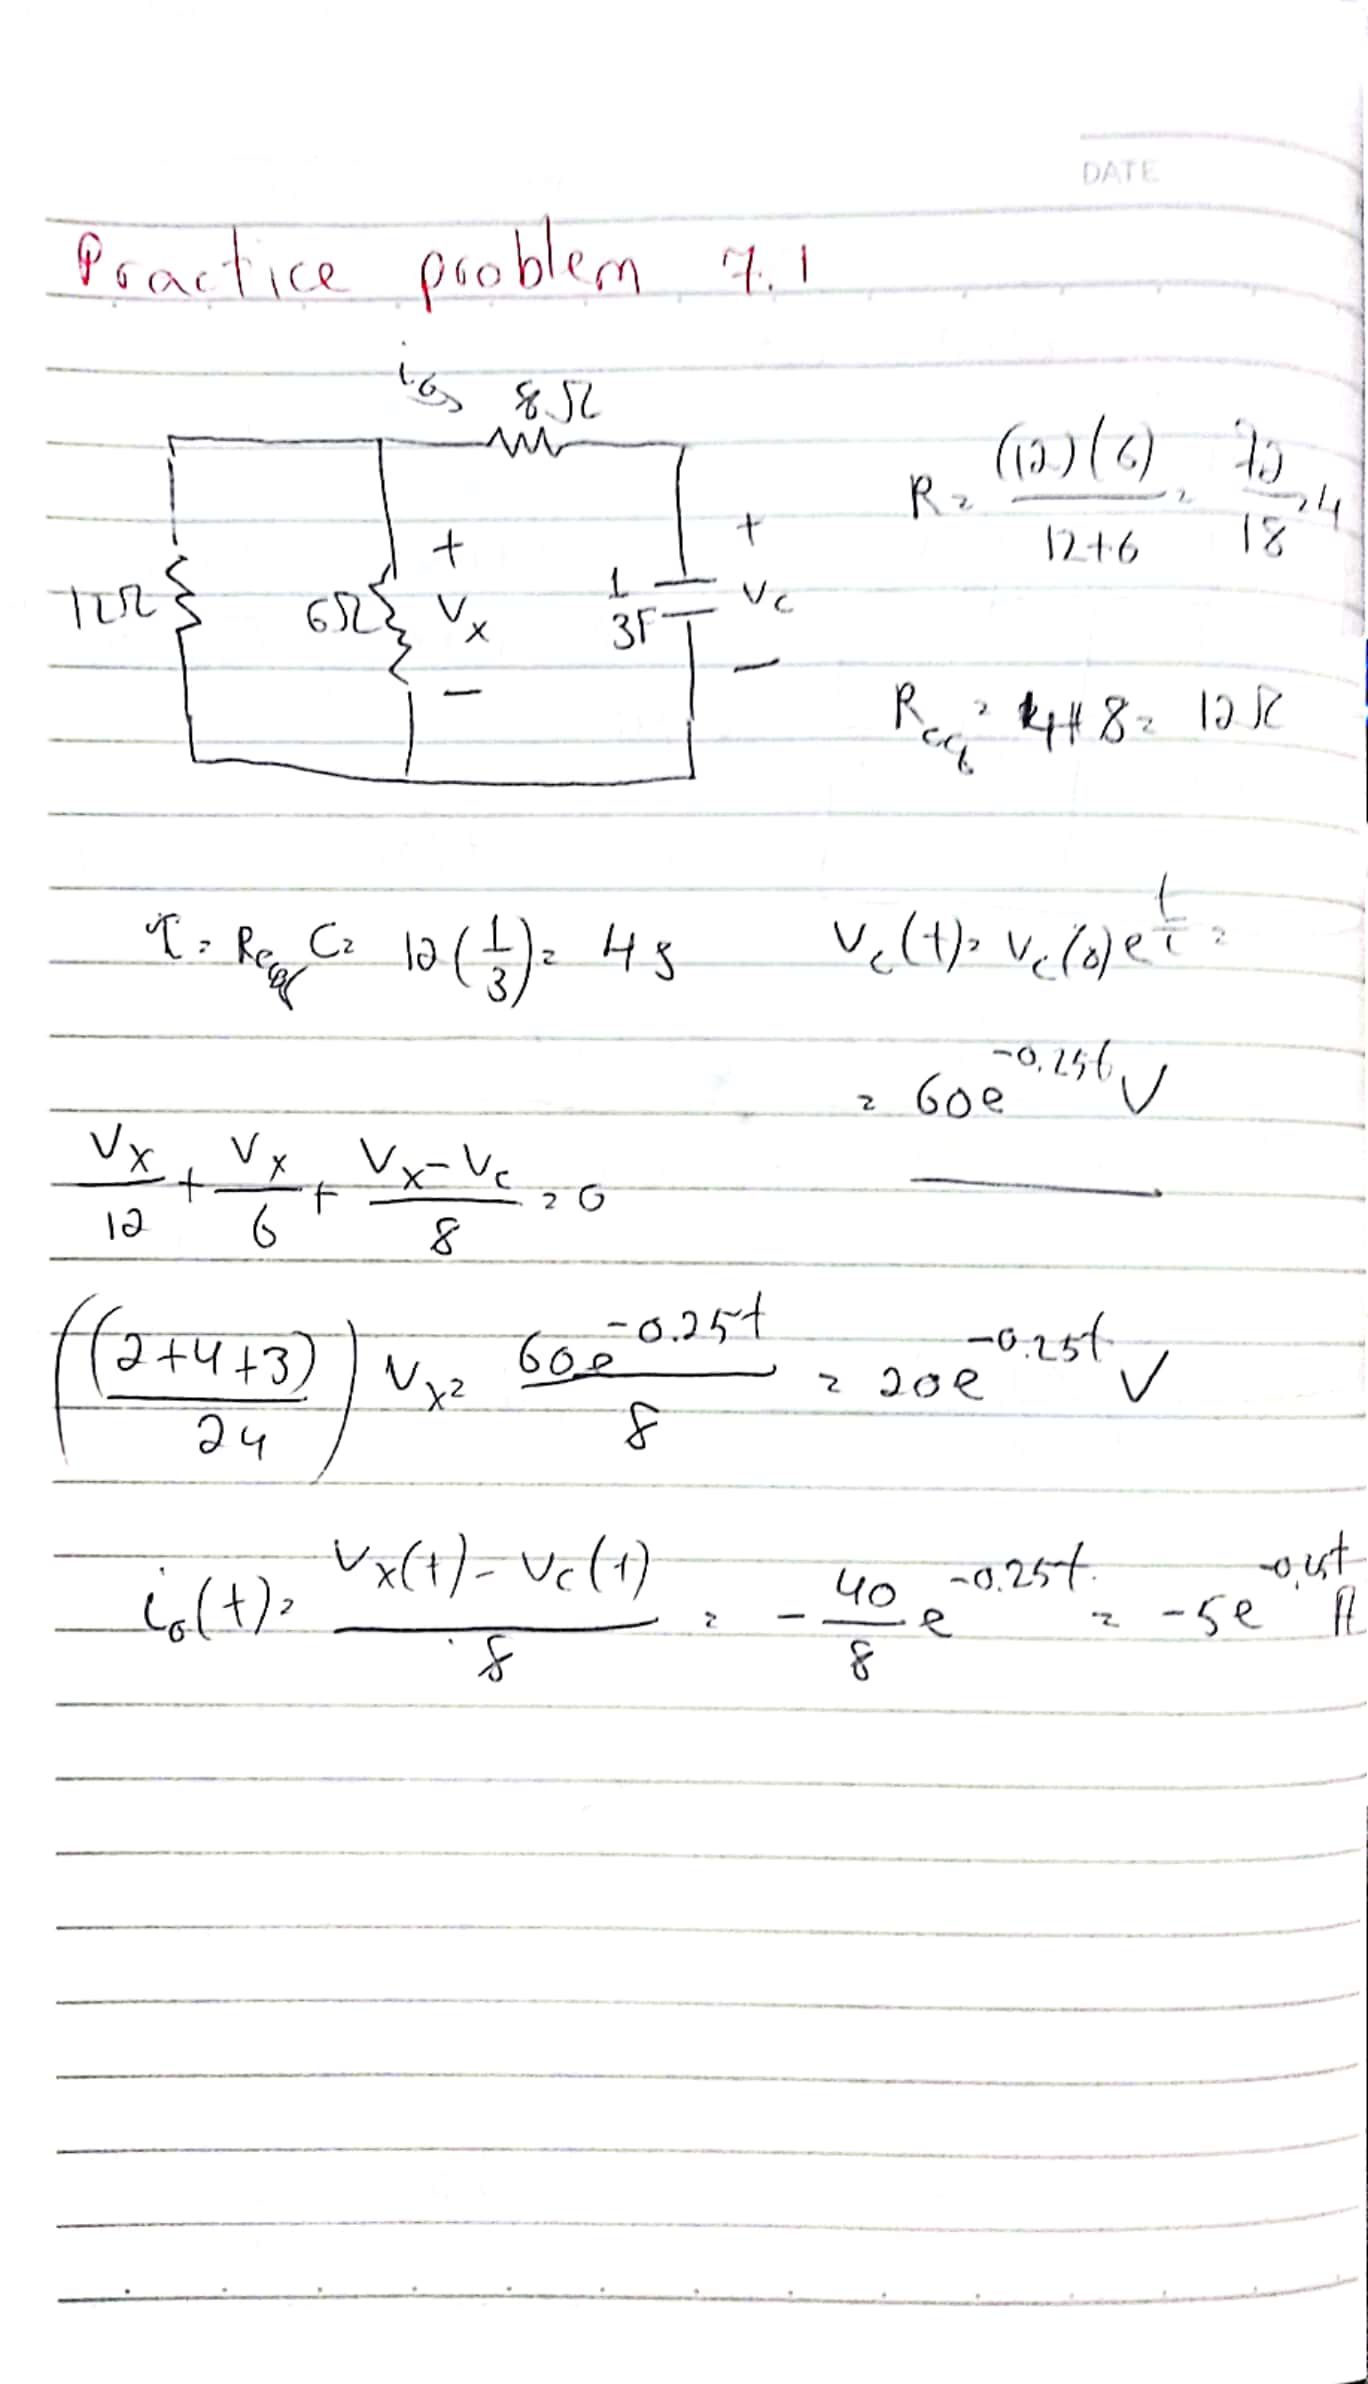 DATE
Practice problem 7.1
i₀ 8Ω
R = (12)(6)/12+6 = 72/18 = 4
12Ω 6Ω + Vx − 1/3F + Vc −
Req = 4+8 = 12Ω
τ = Req C = 12(1/3) = 4s Vc(t) = Vc(0)e^t/τ =
= 60e^-0.25t V
Vx/12 + Vx/6 + Vx-Vc/8 = 0
((2+4+3)/24) Vx = 60e^-0.25t/8 = 20e^-0.25t V
i₀(t) = Vx(t) - Vc(t)/8 = -40/8 e^-0.25t = -5e^-0.25t A